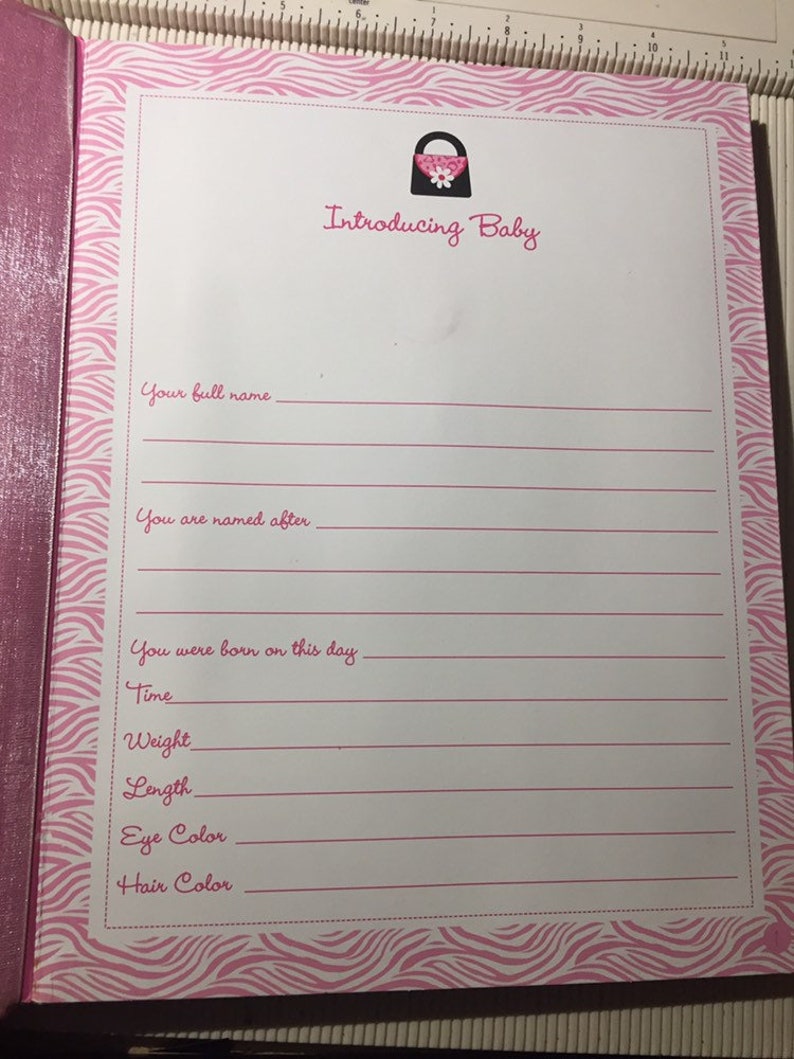 center
5 6 7 8 9 10 11
1 2 3 4 5
Introducing Baby
Your full name
You are named after
You were born on this day
Time
Weight
Length
Eye Color
Hair Color
1